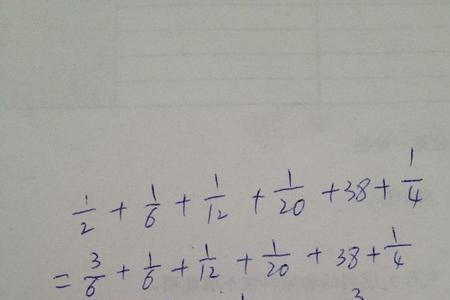 1/2 + 1/6 + 1/12 + 1/20 + 38 + 1/4
= 3/6 + 1/6 + 1/12 + 1/20 + 38 + 1/4